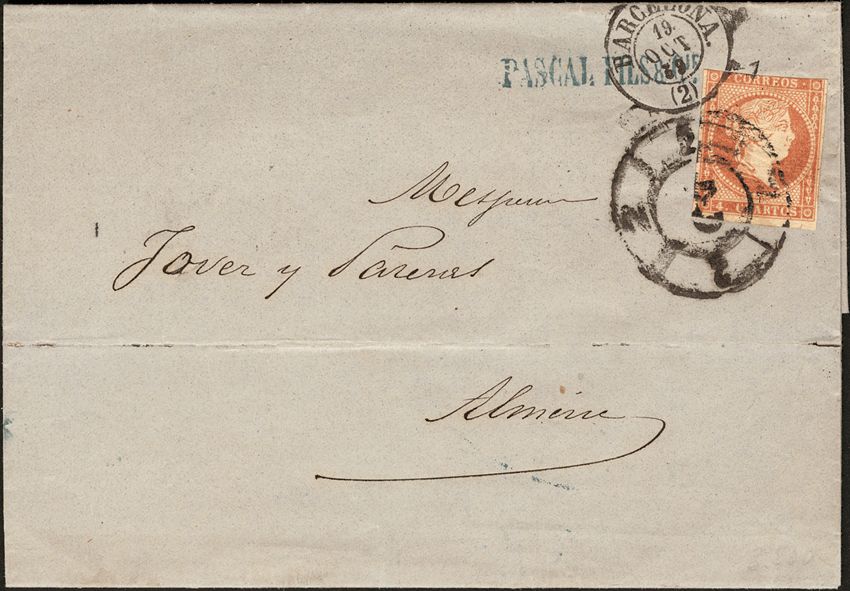 BARCELONA.
19
OCT
59
(2)
PASCAL FILS & CIE.
CORREOS
4. CUARTOS
2
2
Messieurs
Jover y Pareras
Almérie